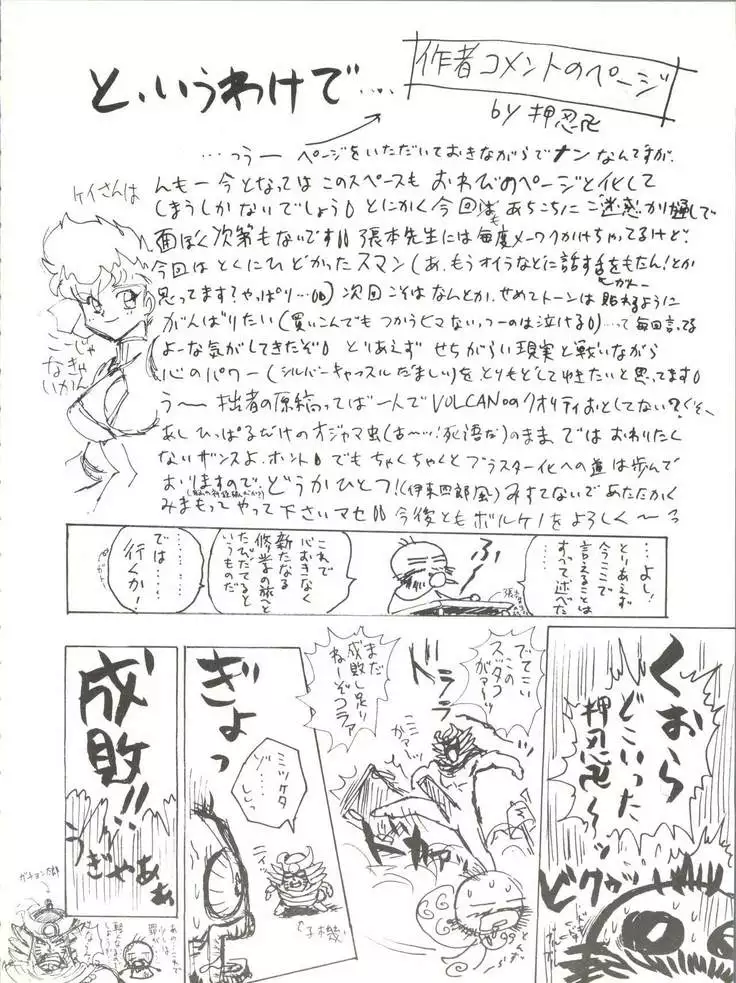 と、いうわけで…
作者コメントのページ
by 押忍卍
…っうー ページをいただいておきながらでナンなんですが、
んもー今となってはこのスペースもおわびのページと化して
しまうしかないでしょう とにかく今回はもあちこちにご迷惑かけ通しで
面ぼく次第もないです 張本先生には毎度メーワクかけちゃってるけど
今回はとくにひどかったスマン(あ、もうオイラなどに話す舌をもたん!とか
思ってます?やっぱり…)次回こそはなんとか、せめてトーンは貼れるように
がんばりたい(買いこんでもつかうヒマないっつーのは泣ける)…って毎回言ってる
よーな気がしてきたぞ とりあえずせちがらい現実と戦いながら
心のパワー(シルバーキャッスルだましい)をとりもどしてゆきたいと思ってます
う〜〜拙者の原稿ってば一人でVOLCANOのクオリティおとしてない?くそ、
あしひっぱるだけのオジャマ虫(古〜ッ!死語だ)のままではおわりたく
ないザンスよ、ホント でもちゃくちゃくとブラスター化への道は歩んで
おりますので、どうかひとつ!(伊東四郎風)みすてないであたたかく
みまもってやって下さいマセ 今後ともボルケーノをよろしく〜
ケイさんは
こーじゃ
なきゃ
いかん
…よし!
とりあえず
今ここで
言えることは
すべて述べた
ふー
これで
心おきなく
新たなる
修学の旅へと
たびだてると
いうものだ
………
では……
行くか!
くおら
どこいった
押忍卍〜ッ
ビクッ
でてこい
このスッタコ
がァーッ
ドララララ
まだ
成敗し足り
ねーぞコラァ
ドカッ
とらず
ぎょっ
ミツケタ
ゾ…
ししっ
ニイッ
子機
成敗!!
うぎゃあぁぁ
ガチョン太郎